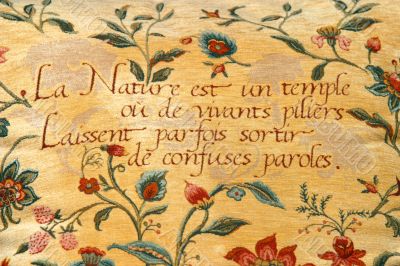 La Nature est un temple
où de vivants piliers
Laissent parfois sortir
de confuses paroles.